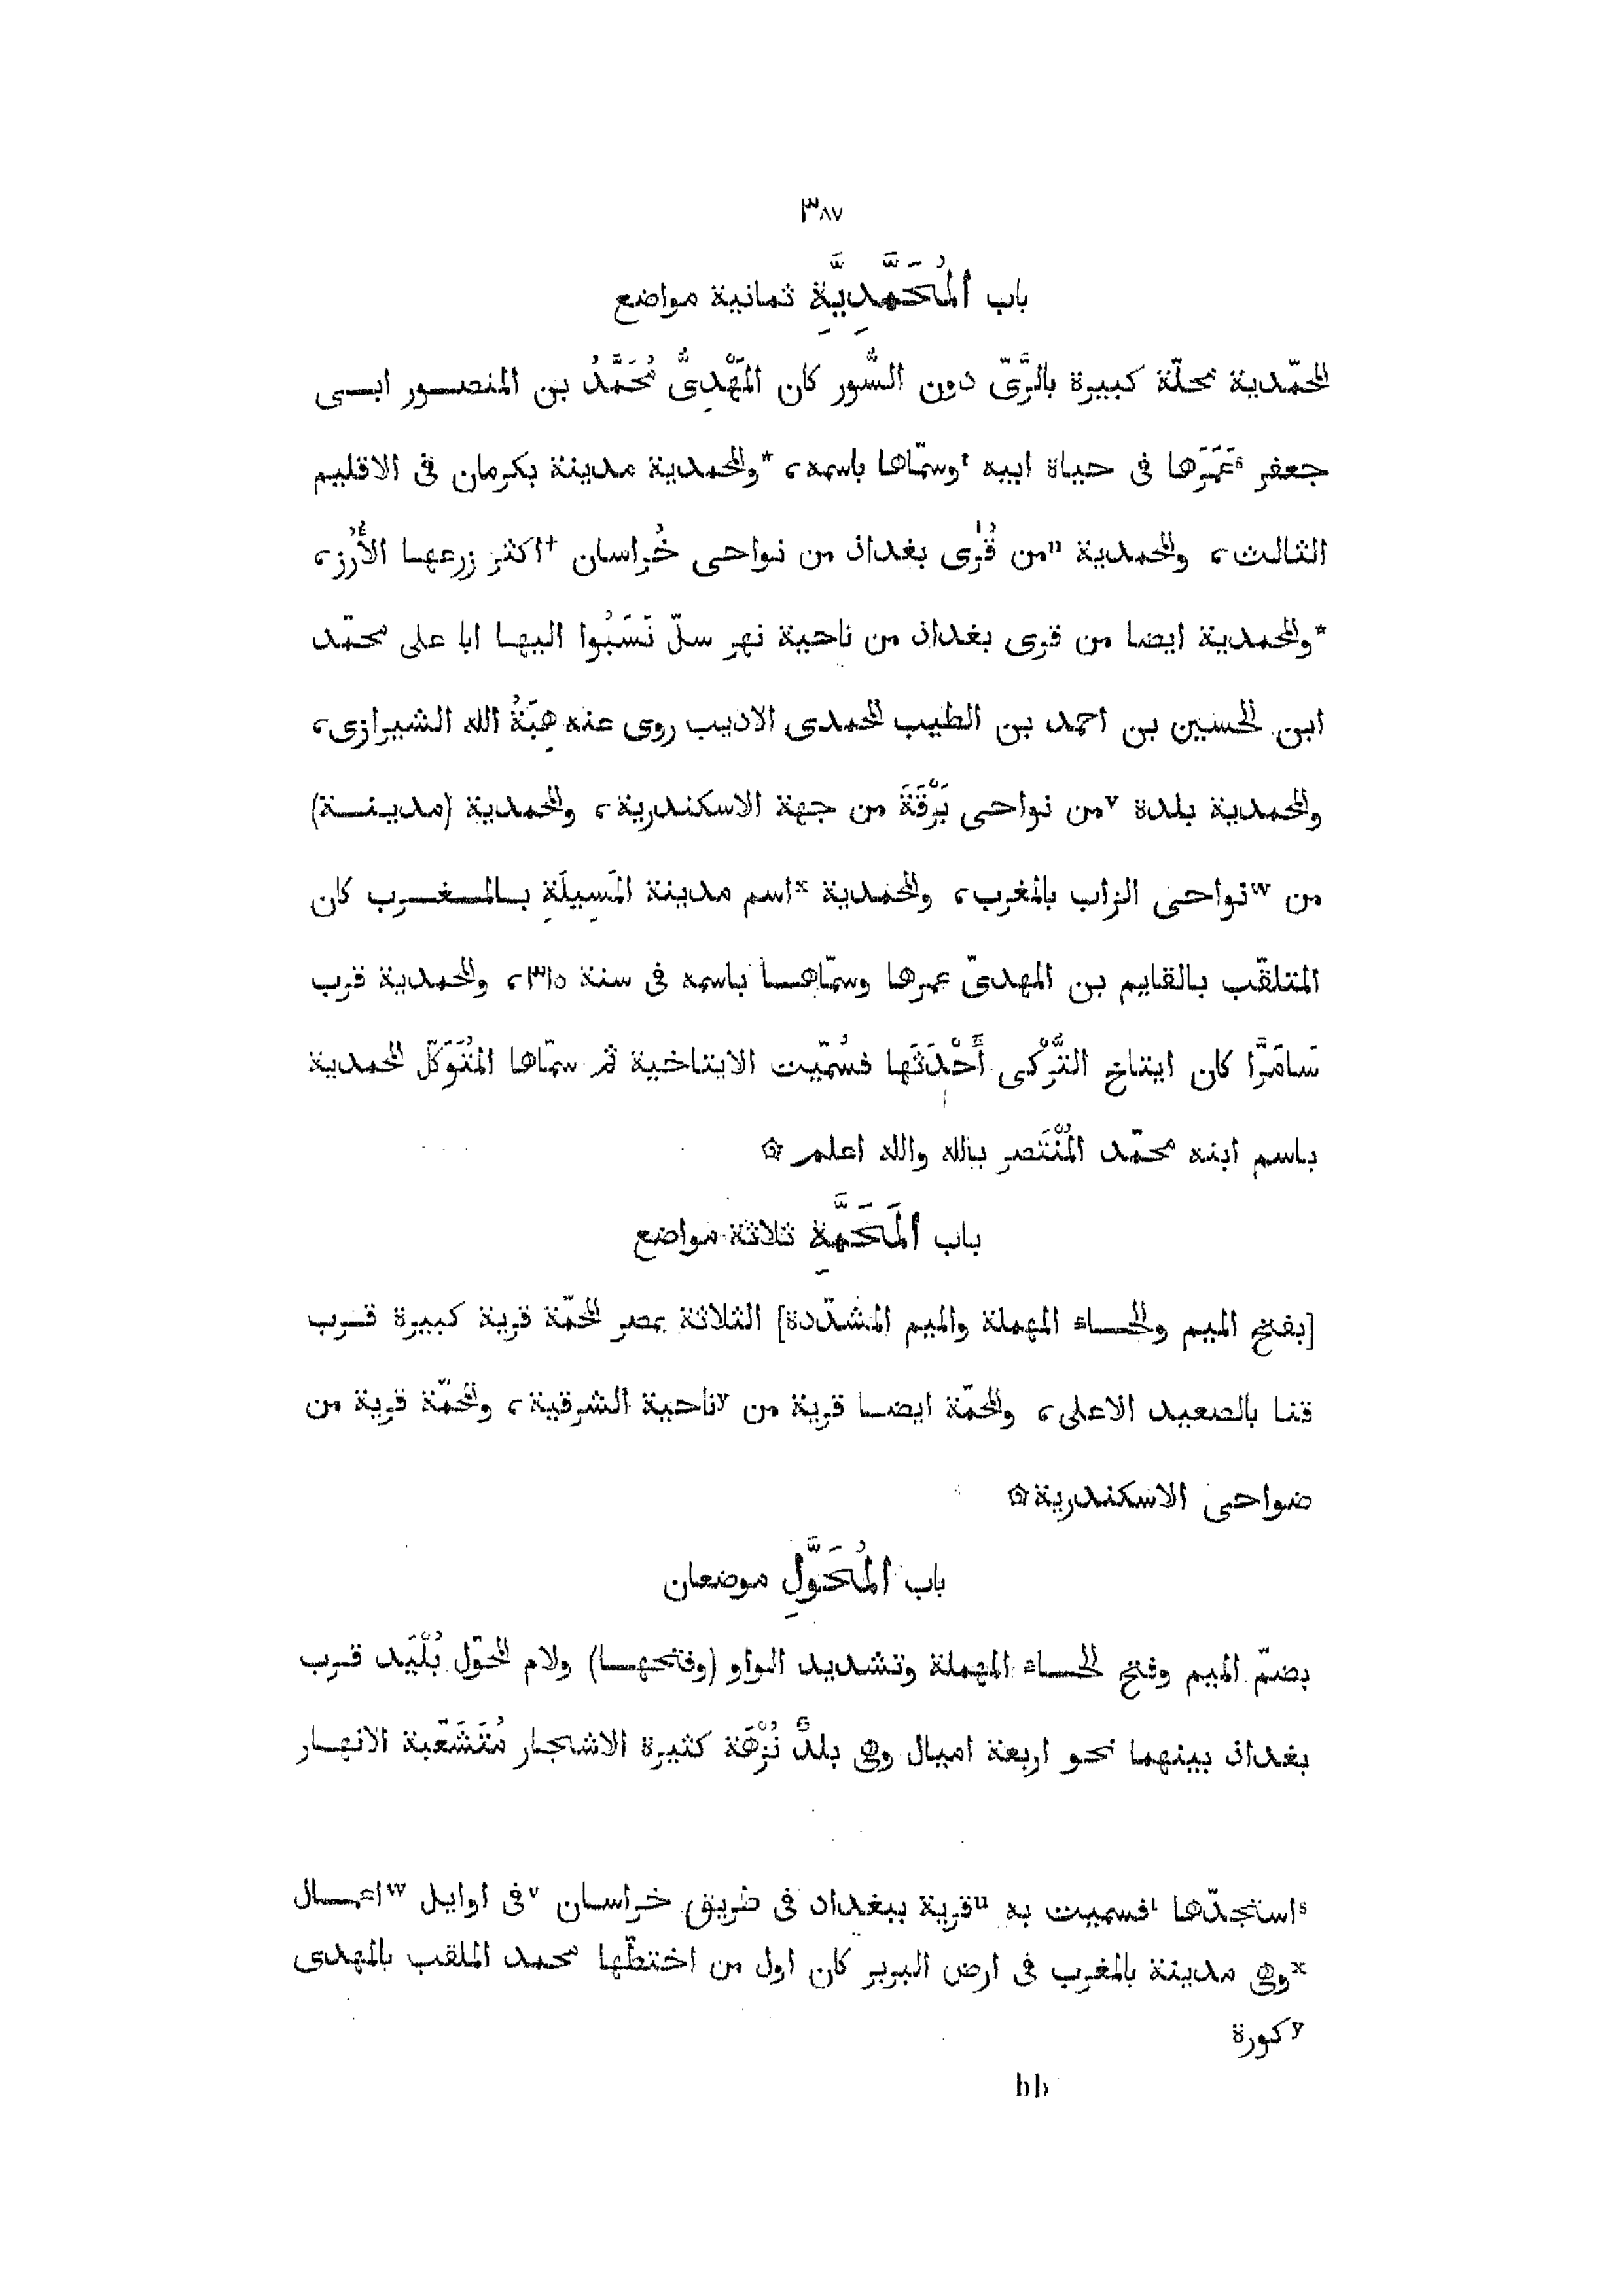 ٣٨٧
باب المُحَمَّدِيَّةِ ثمانية مواضع
المحمّدية محلّة كبيرة بالرَّىّ دون السُّور كان المَهْدِىُّ مُحَمَّدُ بن المنصور ابى
جعفر ⁠s⁠عَمَرَها فى حياة ابيه ⁠t⁠وسمّاها باسمه، *والمحمدية مدينة بكرمان فى الاقليم
الثالث، والمحمدية ⁠u⁠من قُرٰى بغداذ من نواحى خُراسان †اكثر زرعها الأُرز،
*والمحمدية ايضا من قرى بغداذ من ناحية نهر سلّ نَسَبُوا اليها ابا على محمّد
ابن الحسين بن احمد بن الطيب المحمدى الاديب روى عنه هِبَةُ الله الشيرازى،
والمحمدية بلدة ⁠v⁠من نواحى بَرْقَةَ من جهة الاسكندرية، والمحمدية (مدينة)
من ⁠w⁠نواحى الزاب بالمغرب، والمحمدية ⁠x⁠اسم مدينة المَسِيلَةِ بالمغرب كان
المتلقّب بالقايم بن المهدىّ عمرها وسمّاها باسمه فى سنة ٣١٥، والمحمدية قرب
سَامَرَّا كان ايتاخ التُّرْكى أَحْدَثَها فسُمّيت الايتاخية ثم سمّاها المُتَوَكّل المحمدية
باسم ابنه محمّد المُنْتَصر بالله والله اعلم ۞
باب المَحَمَّةِ ثلاثة مواضع
[بفتح الميم والحاء المهملة والميم المشدّدة] الثلاثة بمصر المحمّة قرية كبيرة قرب
قنا بالصعيد الاعلى، والمحمّة ايضا قرية من ⁠y⁠ناحية الشرقية، والمحمّة قرية من
ضواحى الاسكندرية۞
باب المُحَوَّلِ موضعان
بضمّ الميم وفتح الحاء المهملة وتشديد الواو (وفتحها) ولام المحوّل بُلَيْد قرب
بغداذ بينهما نحو اربعة اميال وهى بلدٌ نُزْهَة كثيرة الاشجار مُتَشَعّبة الانهار
s استجدّها t فسميت به u قرية ببغداد فى طريق خراسان v فى اوايل w اعمال
x وهى مدينة بالمغرب فى ارض البربر كان اول من اختطّها محمد الملقب بالمهدى
y كورة
bb